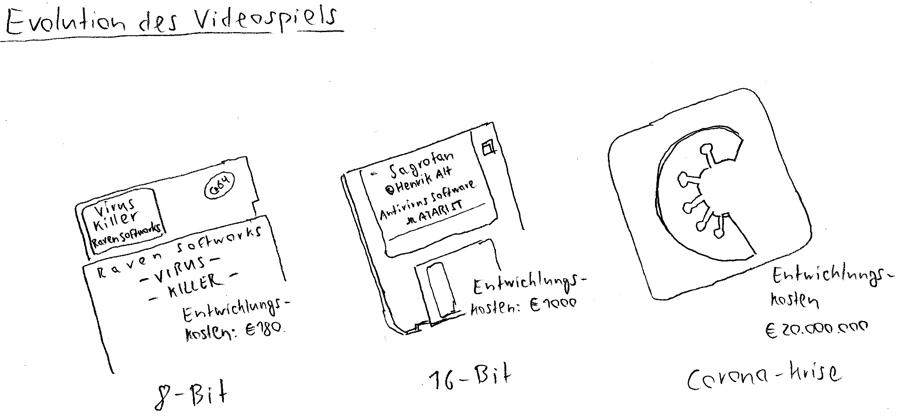 Evolution des Videospiels
Virus
Killer
Raven Softworks
C64
Raven Softworks
- VIRUS -
- KILLER -
Entwicklungs-
kosten: € 180.
8-Bit
- Sagrotan
©Henrik Alt
Antivirus Software
ATARI ST
Entwicklungs-
kosten: € 1000
16-Bit
Entwicklungs-
kosten
€ 20.000.000
Corona-Krise